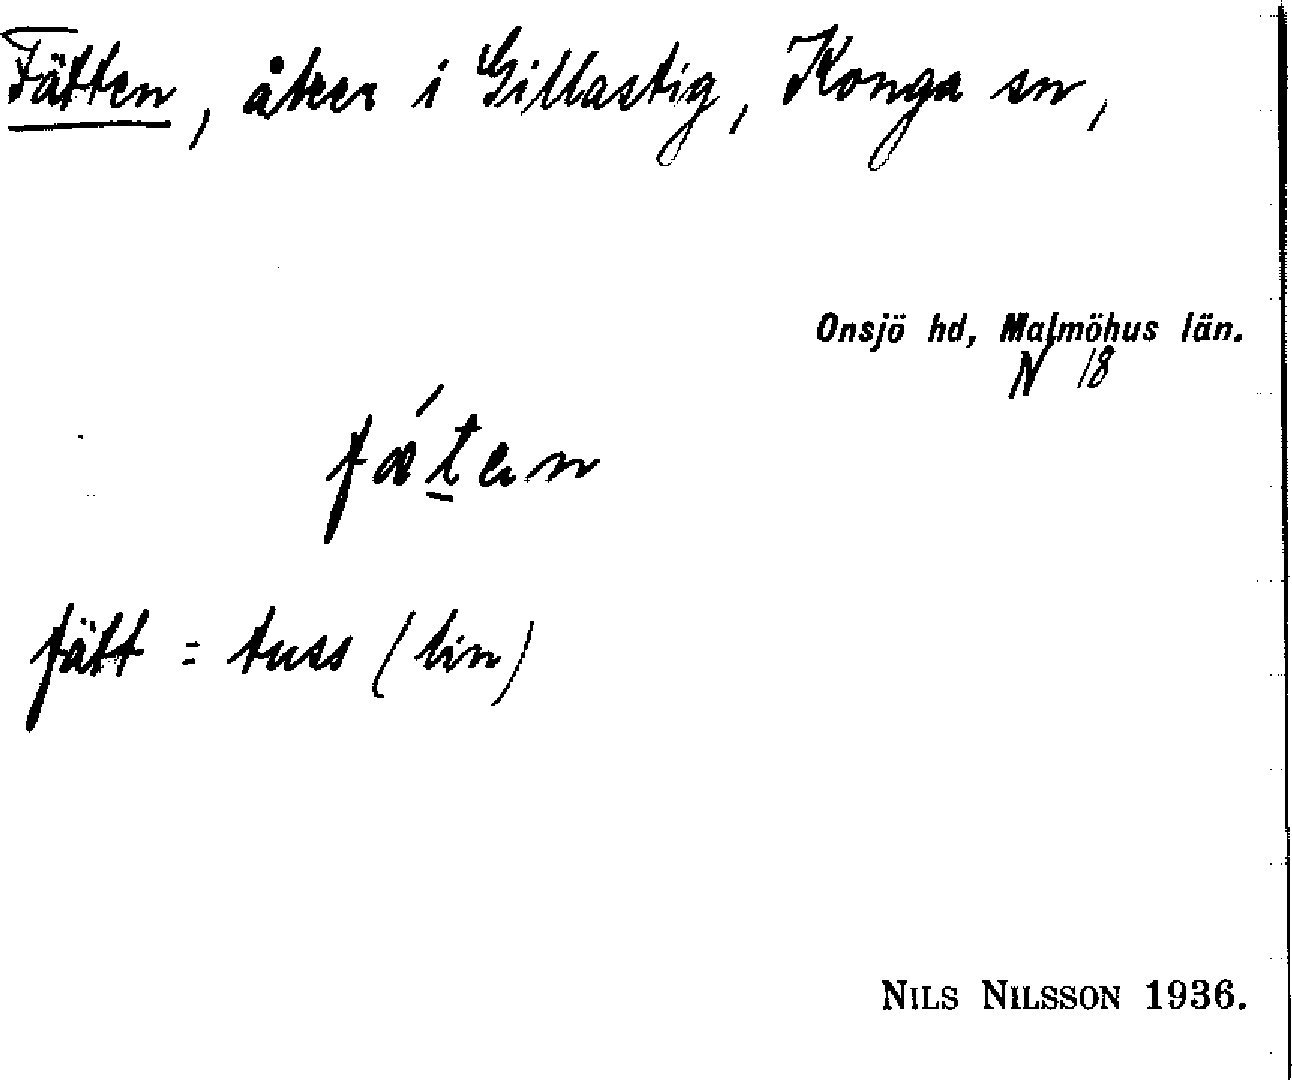 Fätten, åker i Gillastig, Konga sn,
Onsjö hd, Malmöhus län.
N 18
fǽt̲en
fätt = tuss (lin)
NILS NILSSON 1936.